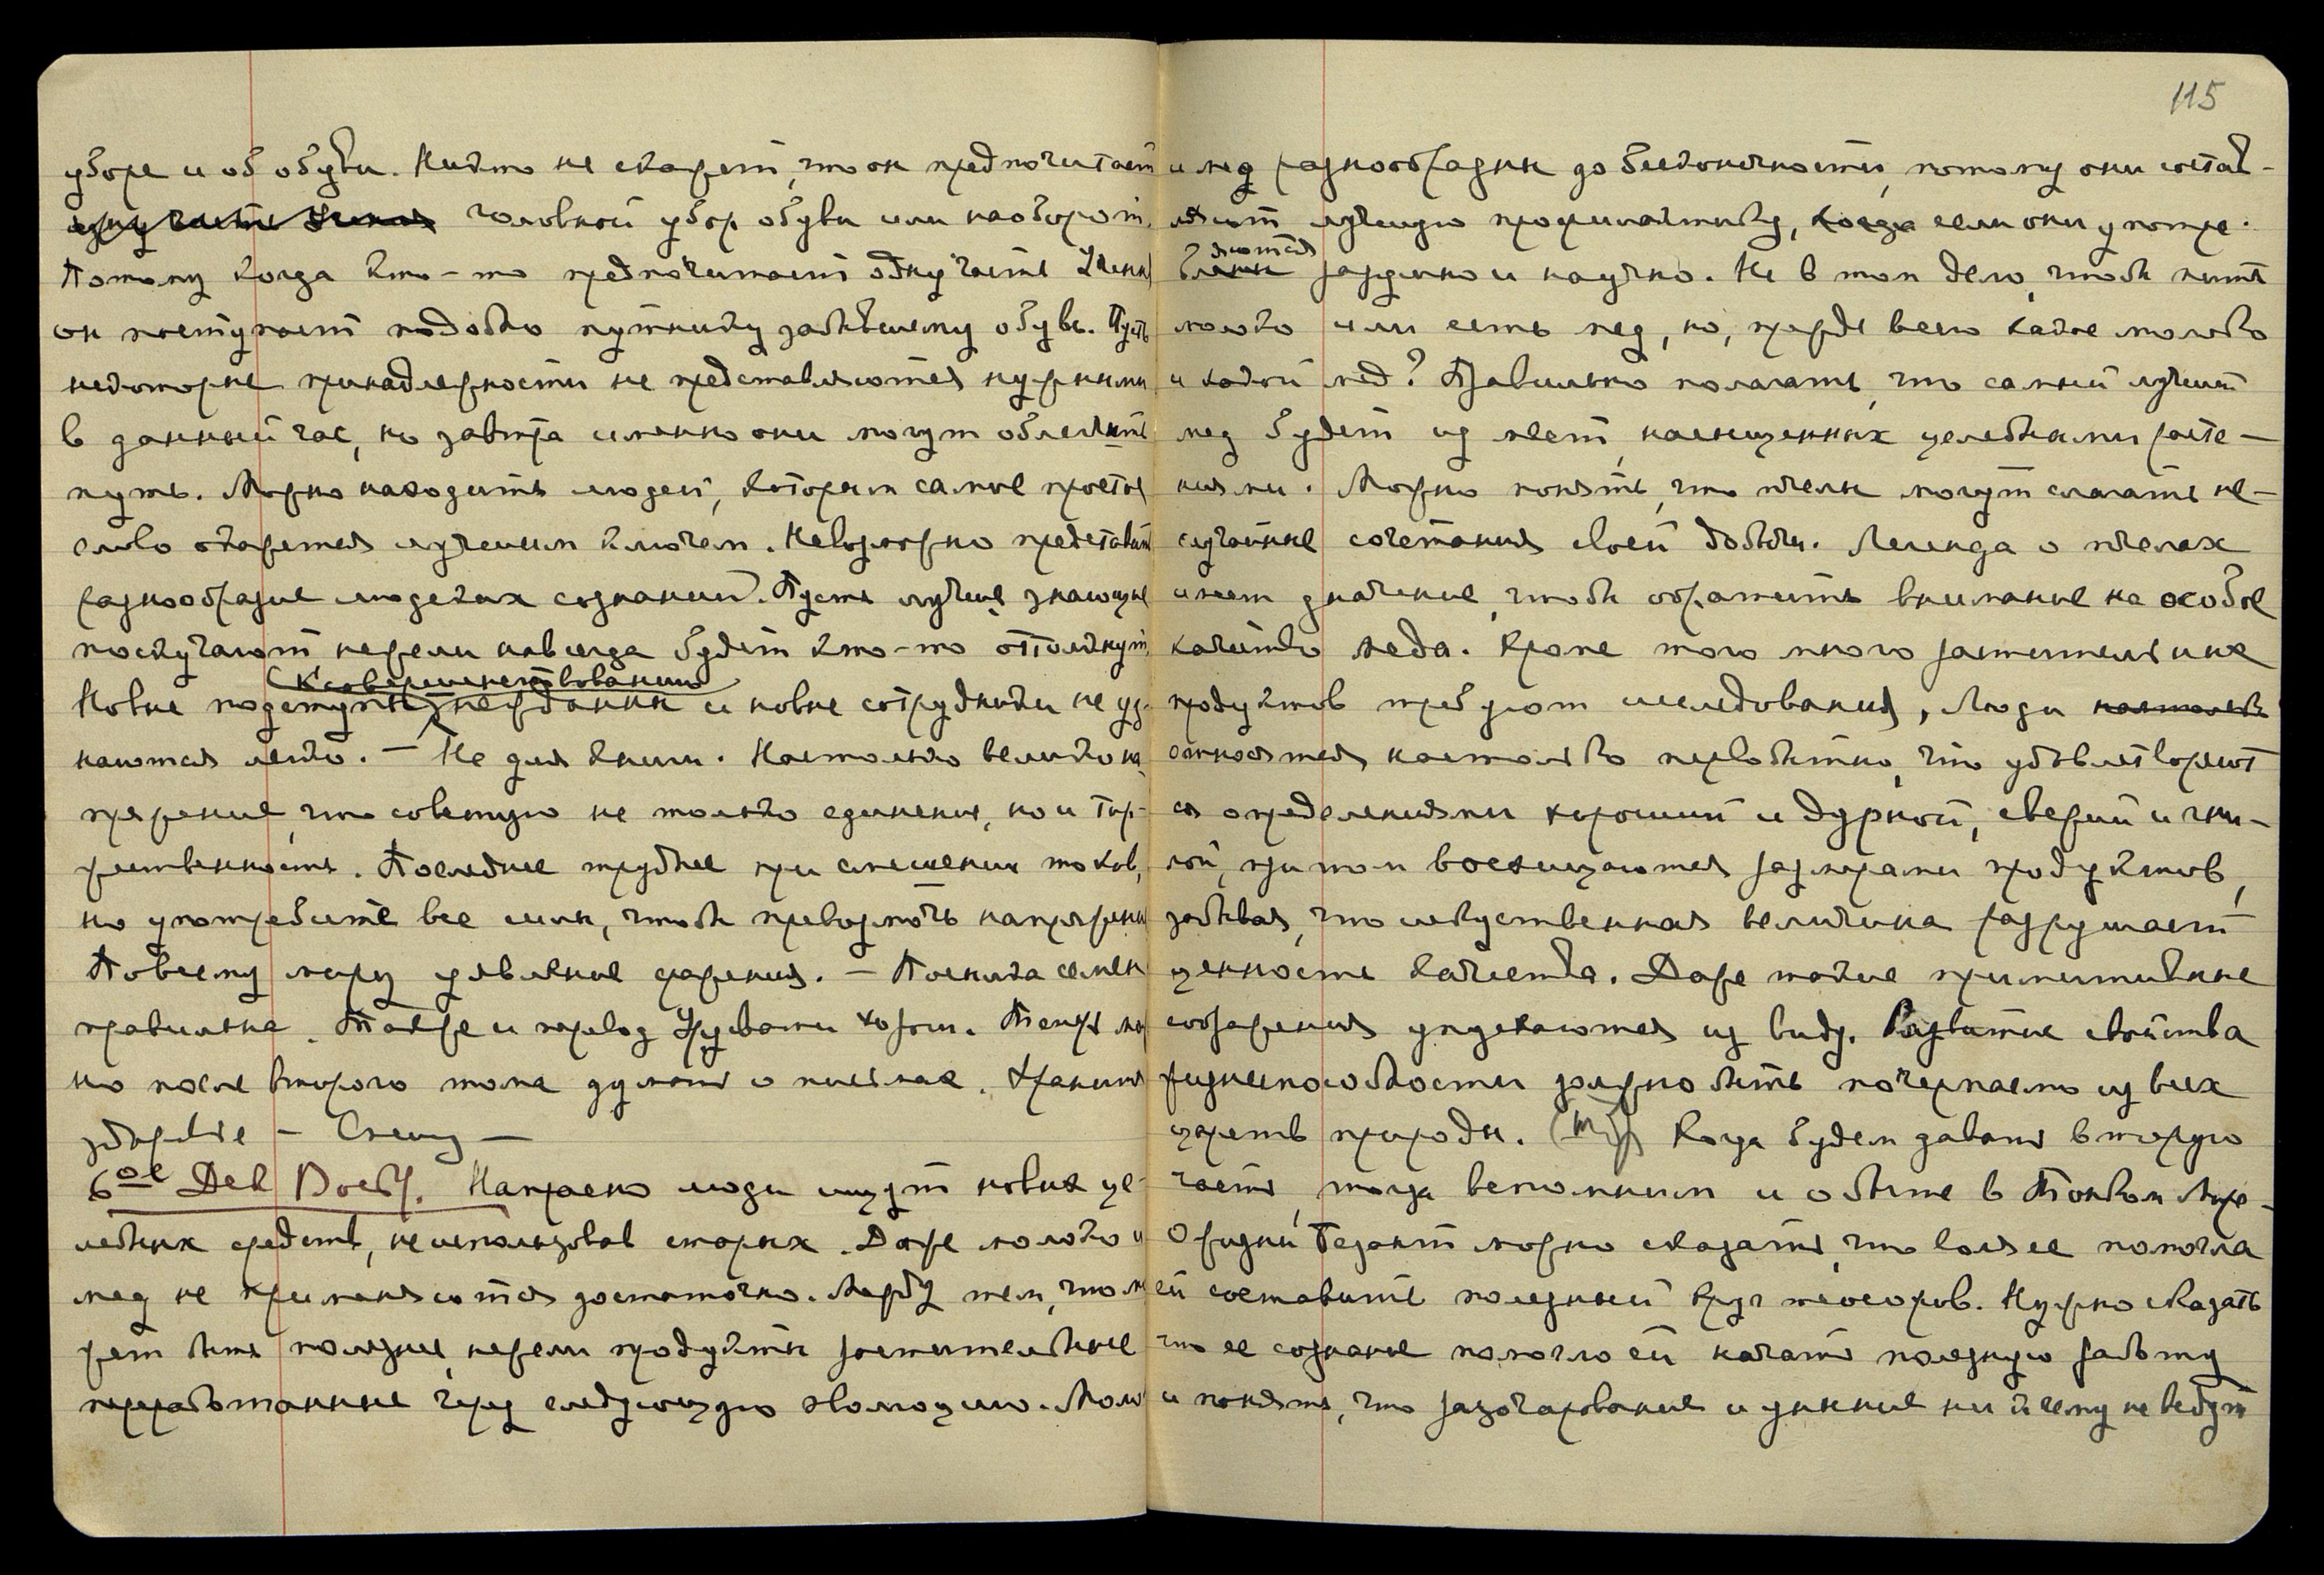 уборе и об обуви. Никто не скажет, что он предпочитает
одну часть Учения головной убор обуви или наоборот.
Потому когда кто-то предпочитает одну часть Учения
он поступает подобно путнику забывшему обувь. Пусть
некоторые принадлежности не представляются нужными
в данный час, но завтра именно они могут облегчить
путь. Можно находить людей, которым самые простые
слово окажется лучшим ключом. Невозможно представить
разнообразие людских сознаний. Пусть лучше знающие
поскучают, нежели навсегда будет кто-то оттолкнут.
к совершенствованию
Новые подступы нежданны и новые сотрудники не уз-
наются легко. — Не для книги. Настолько велико на-
пряжение, что советую не только единения, но и тор-
жественность. Последнее труднее при смешении токов,
но употребите все силы, чтобы превозмочь напряжение
Повсему миру уявление сражения. — Посылка семян
правильна. Также и перевод Урусвати хорош. Теперь мож
но после второго тома думать о письмах. Храните
здоровье — Спешу —
6ое Дек Воскр. Напрасно люди ищут новых це-
лебных средств, не использовав старых. Даже молоко и
мед не применяются достаточно. Между тем, что мо
жет быть полезнее, нежели продукты растительные
переработанные через следующую эволюцию. Моло
115
и мед разнообразны до бесконечности, потому они состав-
ляют лучшую профилактику, когда если они употре-
бляются
блены разумно и научно. Не в том дело, чтобы пить
молоко или есть мед, но, прежде всего какое молоко
и какой мед? Правильно полагать, что самый лучший
мед будет из мест, насыщенных целебными расте-
ниями. Можно понять, что пчелы могут слагать не-
случайные сочетания своей добычи. Легенда о пчелах
имеет значение, чтобы обратить внимание на особое
качество меда. Кроме того много растительных
продуктов требуют исследования, Люди настолько
относятся настолько первобытно, что удовлетворяют
ся определениями хороший и дурной, свежий и гни-
лой, притом восхищаются размерами продуктов,
забывая, что искусственная величина разрушает
ценность качества. Даже такие примитивные
соображения упускаются из виду. Развитие свойства
жизнеспособности должно быть почерпаемо из всех
царств природы. Когда будем давать вторую
часть, тогда вспомним и о быте в Тонком Мире-
О жизни Безант можно сказать, что воля ее помогла
ей составить полезный круг теософов. Нужно сказать
что ее сознание помогло ей начать полезную работу
и понять, что разочарование и уныние ни к чему не ведут